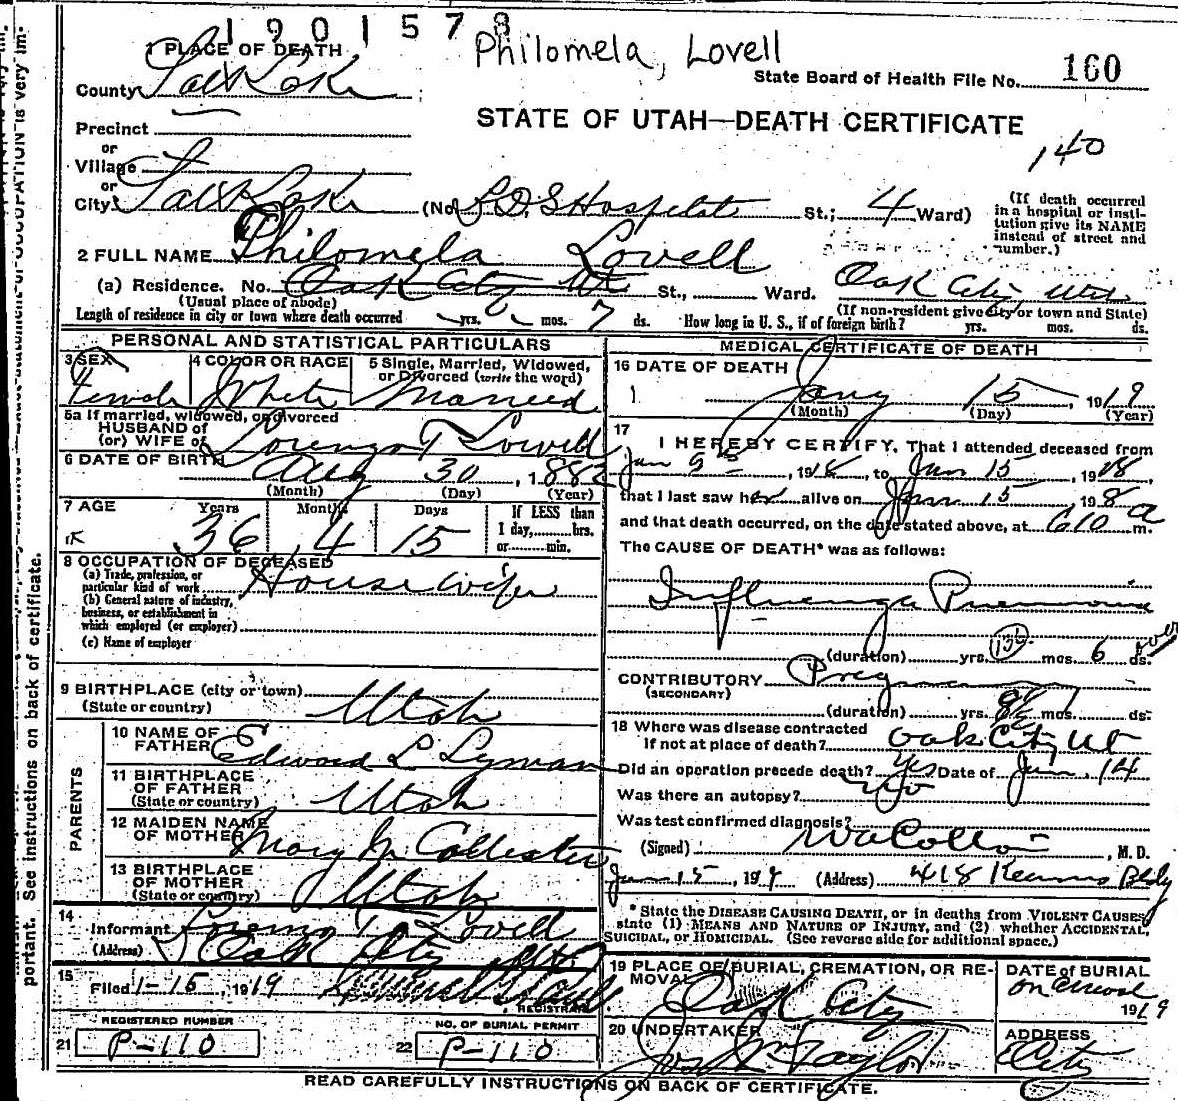 1901578
Philomela, Lovell
1 PLACE OF DEATH
State Board of Health File No. 160
County Salt Lake
STATE OF UTAH—DEATH CERTIFICATE
Precinct
140
or
Village
or
City Salt Lake (No. L.D.S Hospital St.; 4 Ward) (If death occurred in a hospital or insti- tution give its NAME instead of street and number.)
2 FULL NAME Philomela Lovell
(a) Residence. No. Oak City Ut St., Ward. Oak City, Utah
(Usual place of abode) (If non-resident give city or town and State)
Length of residence in city or town where death occurred yrs. mos. 7 ds. How long in U. S., if of foreign birth? yrs. mos. ds.
PERSONAL AND STATISTICAL PARTICULARS
3 SEX Female
4 COLOR OR RACE White
5 Single, Married, Widowed, or Divorced (write the word) Married
5a If married, widowed, or divorced
HUSBAND of
(or) WIFE of Lorenzo T Lovell
6 DATE OF BIRTH Aug 30, 1882
(Month) (Day) (Year)
7 AGE Years Months Days If LESS than
36 4 15 1 day, hrs.
or min.
8 OCCUPATION OF DECEASED
(a) Trade, profession, or
particular kind of work Housewife
(b) General nature of industry,
business, or establishment in
which employed (or employer)
(c) Name of employer
9 BIRTHPLACE (city or town)
(State or country) Utah
PARENTS
10 NAME OF
FATHER Edward L Lyman
11 BIRTHPLACE
OF FATHER
(State or country) Utah
12 MAIDEN NAME
OF MOTHER Mary M Callister
13 BIRTHPLACE
OF MOTHER
(State or country) Utah
14
Informant Lorenzo T Lovell
(Address) Oak City
15
Filed 1-15, 1919
REGISTRAR
REGISTERED NUMBER
21 P-110
NO. OF BURIAL PERMIT
22 P-110
MEDICAL CERTIFICATE OF DEATH
16 DATE OF DEATH
Jany 15, 1919
(Month) (Day) (Year)
17
I HEREBY CERTIFY, That I attended deceased from
Jan 9th, 1918, to Jan 15, 1918,
that I last saw her alive on Jan 15 198
and that death occurred, on the date stated above, at 610 a m.
The CAUSE OF DEATH* was as follows:
Influenza Pneumonia
(duration) yrs. mos. 6 ds.
CONTRIBUTORY Pregnancy
(SECONDARY)
(duration) yrs. 8½ mos. ds.
18 Where was disease contracted
if not at place of death? Oak City Ut
Did an operation precede death? Yes Date of Jan. 14
Was there an autopsy? No
Was test confirmed diagnosis?
(Signed) , M. D.
Jan 15, 1919 (Address) 418 Kearns Bldg
* State the DISEASE CAUSING DEATH, or in deaths from VIOLENT CAUSES,
state (1) MEANS AND NATURE OF INJURY, and (2) whether ACCIDENTAL,
SUICIDAL, or HOMICIDAL. (See reverse side for additional space.)
19 PLACE OF BURIAL, CREMATION, OR RE-
MOVAL Oak City
DATE of BURIAL
on arrival
1919
20 UNDERTAKER
Jos Wm Taylor
ADDRESS
City
READ CAREFULLY INSTRUCTIONS ON BACK OF CERTIFICATE.
portant. See instructions on back of certificate.
OCCUPATION is very im-